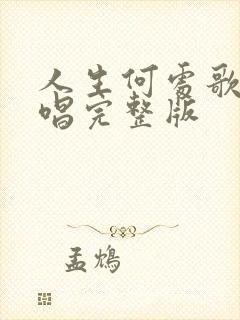 人生何处歌
唱完整版
孟鸩